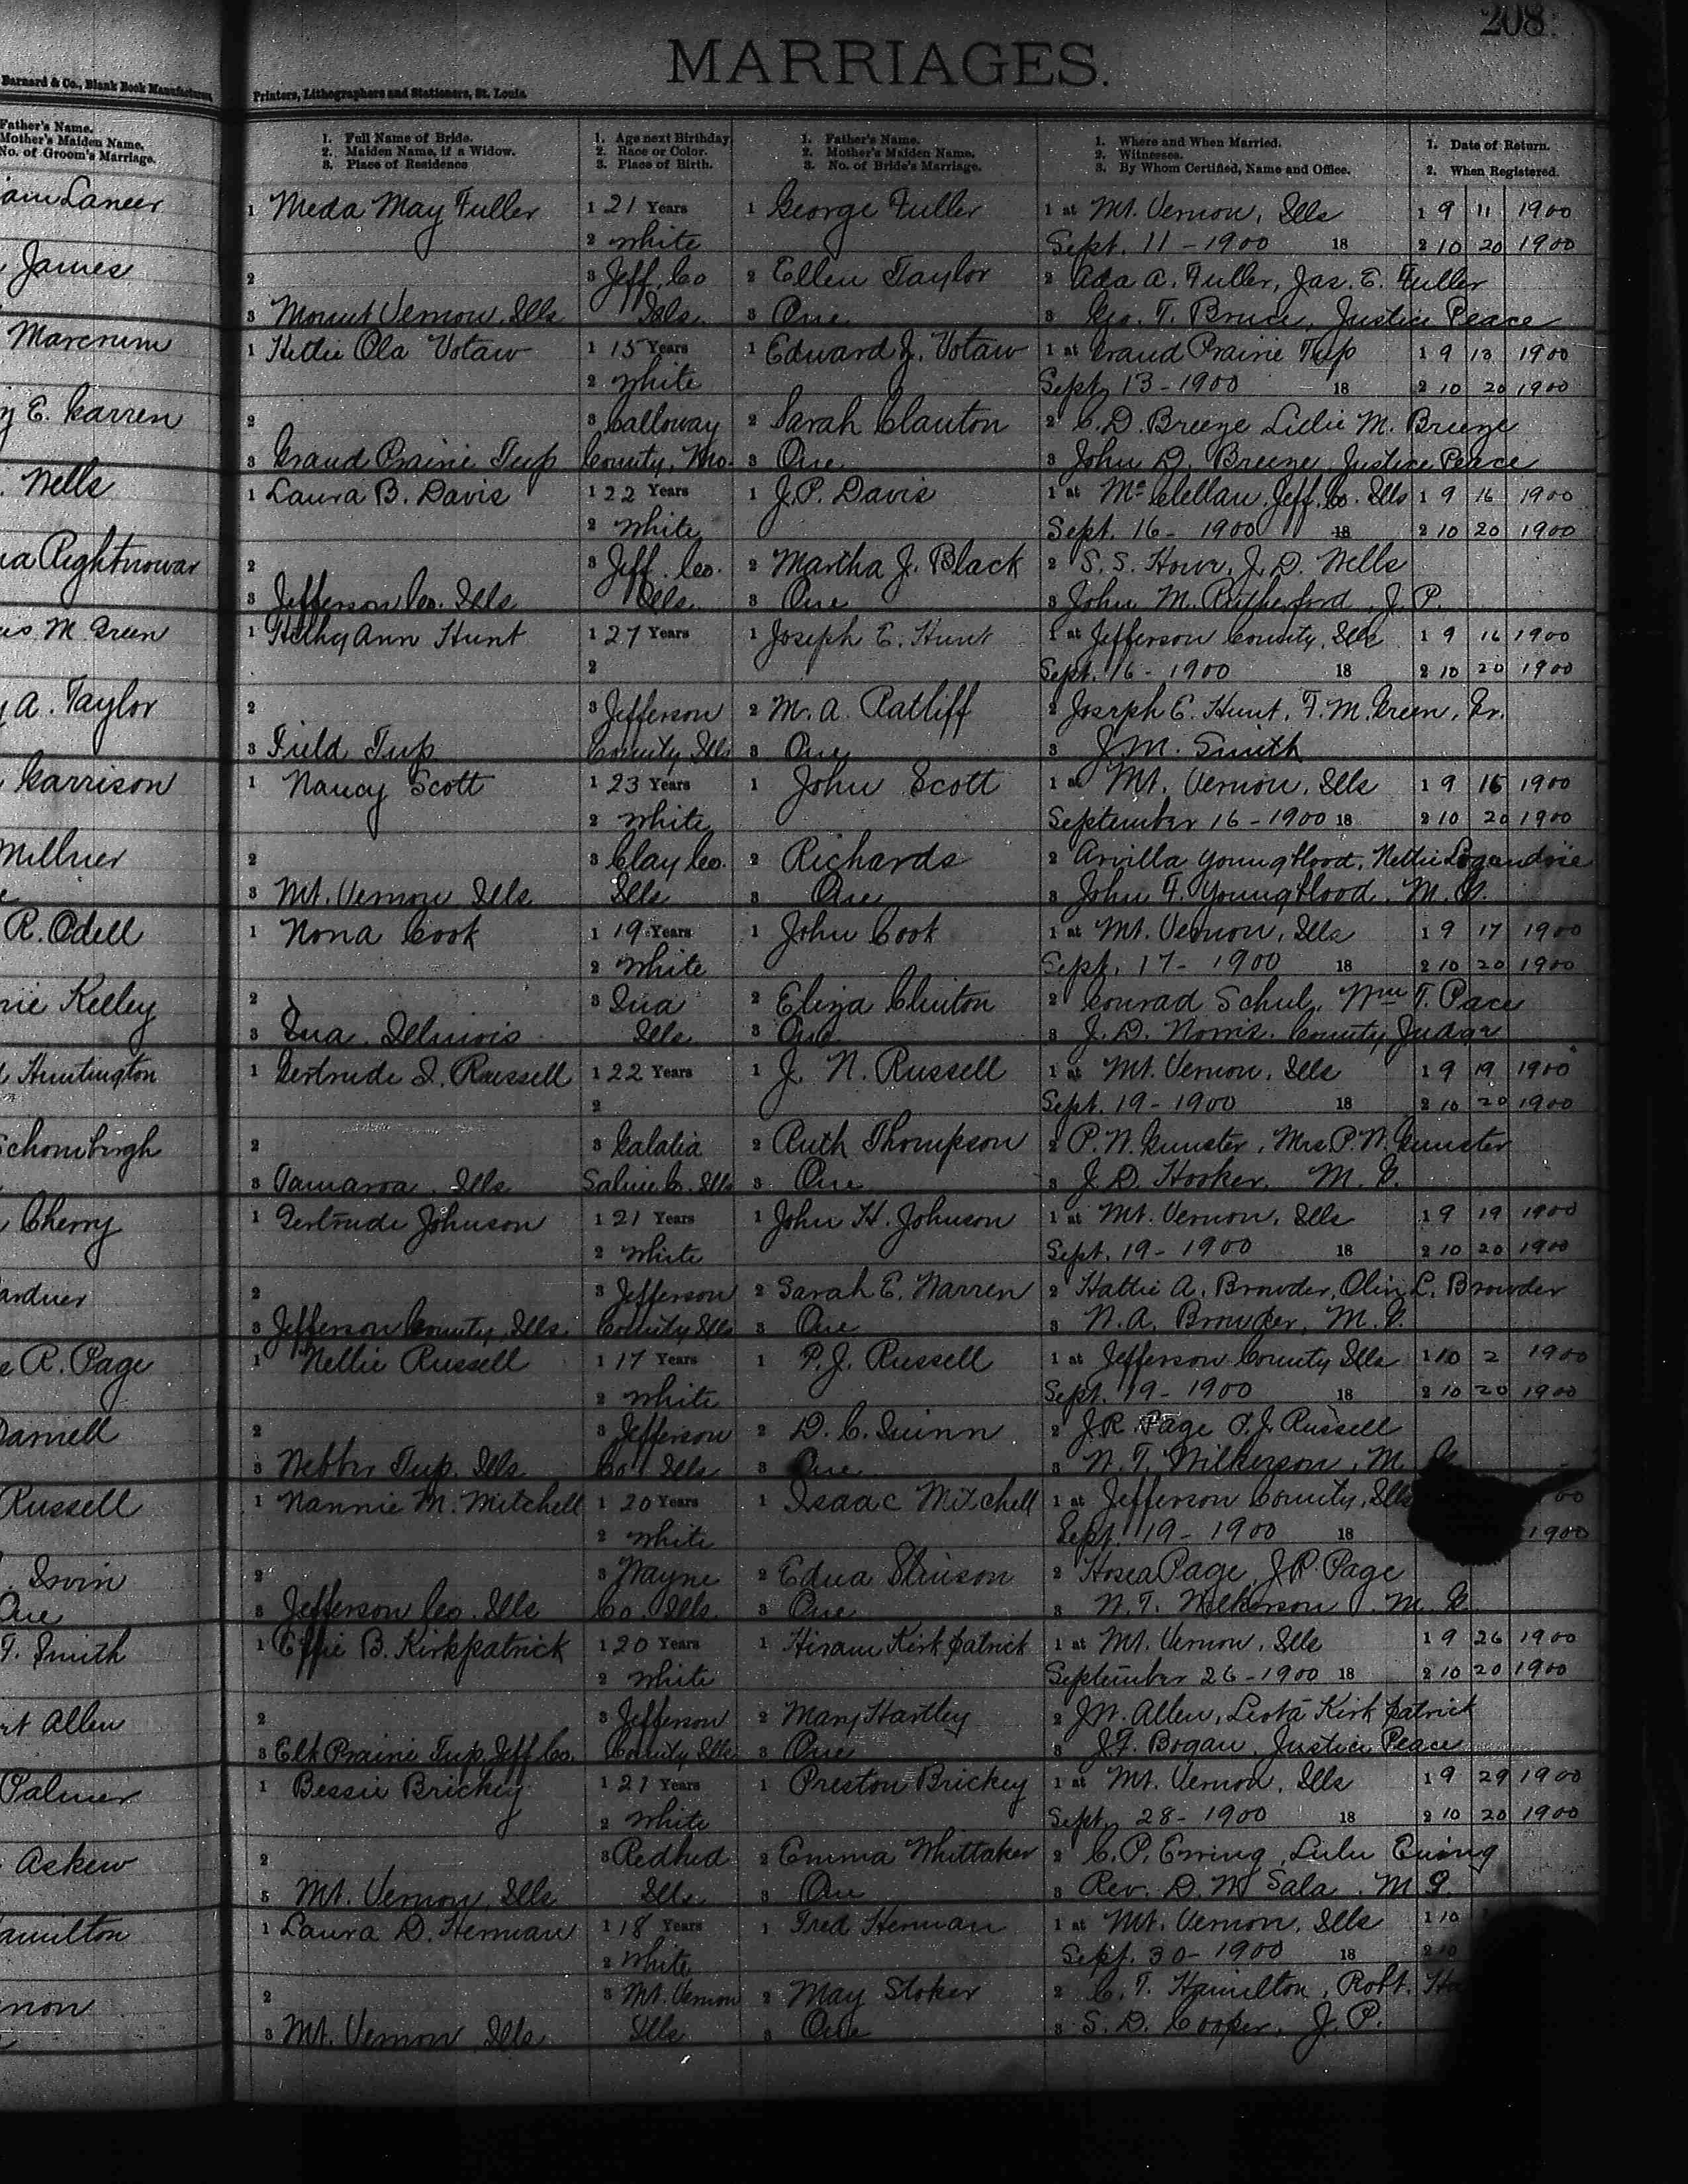 208.
MARRIAGES.
Barnard & Co., Blank Book Manufacturers,
Printers, Lithographers and Stationers, St. Louis.
Father's Name.
Mother's Maiden Name.
No. of Groom's Marriage.
1. Full Name of Bride.
2. Maiden Name, if a Widow.
3. Place of Residence
1. Age next Birthday
2. Race or Color.
3. Place of Birth.
1. Father's Name.
2. Mother's Maiden Name.
3. No. of Bride's Marriage.
1. Where and When Married.
2. Witnesses.
3. By Whom Certified, Name and Office.
1. Date of Return.
2. When Registered.
iam Laneer
1 Meda May Fuller 1 21 Years 1 George Fuller 1 at Mt. Vernon, Ills 1 9 11 1900
2 White Sept. 11 - 1900 18 2 10 20 1900
James
2 3 Jeff. Co 2 Ellen Taylor 2 Ada A. Fuller, Jas. E. Fuller
3 Mount Vernon, Ills Ills. 3 One 3 Geo. T. Bruce, Justice Peace
Marcrum
1 Hettie Ola Votaw 1 15 Years 1 Edward J. Votaw 1 at Grand Prairie Twp 1 9 13 1900
2 White Sept, 13 - 1900 18 2 10 20 1900
y E. Garren
2 3 Calloway 2 Sarah Clanton 2 C. D. Breeze Lillie M. Breeze
3 Grand Prairie Twp County, Mo. 3 One 3 John D. Breeze, Justice Peace
. Wells
1 Laura B. Davis 1 22 Years 1 J. P. Davis 1 at McClellan, Jeff. Co. Ills 1 9 16 1900
2 White Sept. 16 - 1900 18 2 10 20 1900
na Rightnowar
2 3 Jeff. Co. 2 Martha J. Black 2 S. S. Howe, J. D. Wells
3 Jefferson Co. Ills Ills. 3 One 3 John M. Rutherford, J. P.
M Green
1 Ann Hunt 1 27 Years 1 Joseph E. Hunt 1 at Jefferson County, Ills 1 9 16 1900
2 Sept. 16 - 1900 18 2 10 20 1900
y A. Taylor
2 3 Jefferson 2 M. A. Ratliff 2 Joseph E. Hunt, F. M. Green, Sr.
3 Field Twp County Ills 3 One 3 J. M. Smith
Garrison
1 Nancy Scott 1 23 Years 1 John Scott 1 at Mt. Vernon, Ills 1 9 16 1900
2 White September 16 - 1900 18 2 10 20 1900
Millner
2 3 Clay Co. 2 Richards 2 Arvilla Youngblood, Nettie
3 Mt. Vernon Ills Ills 3 One 3 John F. Youngblood, M. G.
R. Odell
1 Nona Cook 1 19 Years 1 John Cook 1 at Mt. Vernon, Ills 1 9 17 1900
2 White Sept. 17 - 1900 18 2 10 20 1900
nie Kelley
2 3 Ina 2 Eliza Clinton 2 Conrad Schul, Wm T. Pace
3 Ina, Illinois Ills 3 One 3 J. D. Norris. County Judge
Huntington
1 Gertrude I. Russell 1 22 Years 1 J. N. Russell 1 at Mt. Vernon, Ills 1 9 19 1900
2 Sept. 19 - 1900 18 2 10 20 1900
Schomburgh
2 3 Galatia 2 Ruth Thompson 2 P. W. Gunster, Mrs. P. W. Gunster
3 Tamaroa, Ills Saline Co. Ills 3 One 3 J. D. Hooker, M. G.
Cherry
1 Gertrude Johnson 1 21 Years 1 John H. Johnson 1 at Mt. Vernon, Ills 1 9 19 1900
2 White Sept. 19 - 1900 18 2 10 20 1900
ardner
2 3 Jefferson 2 Sarah E. Warren 2 Hattie A. Browder, Olin L. Browder
3 Jefferson County, Ills. County Ills 3 One 3 N. A. Browder, M. G.
R. Page
1 Nellie Russell 1 17 Years 1 P. J. Russell 1 at Jefferson County Ills 1 10 2 1900
2 White Sept. 19 - 1900 18 2 10 20 1900
Darnell
2 3 Jefferson 2 D. C. Quinn 2 J. R. Page P. J. Russell
3 Webber Twp. Ills Co. Ills 3 One 3 N. T. Wilkerson, M. G.
Russell
1 Nannie M. Mitchell 1 20 Years 1 Isaac Mitchell 1 at Jefferson County, Ills 00
2 White Sept. 19 - 1900 18 1900
. Irvin
2 3 Wayne 2 Edna Stinson 2 Hosea Page, J. R. Page
One
3 Jefferson Co. Ills Co. Ills. 3 One 3 N. T. Wilkerson, M. G.
T. Smith
1 Effie B. Kirkpatrick 1 20 Years 1 Hiram Kirkpatrick 1 at Mt. Vernon, Ills 1 9 26 1900
2 White September 26 - 1900 18 2 10 20 1900
rt Allen
2 3 Jefferson 2 Mary Hartley 2 J. W. Allen, Leota Kirkpatrick
3 Elk Prairie Twp, Jeff. Co. County Ills 3 One 3 J. F. Bogan, Justice Peace
Palmer
1 Bessie Brickey 1 21 Years 1 Preston Brickey 1 at Mt. Vernon, Ills 1 9 29 1900
2 White Sept, 28 - 1900 18 2 10 20 1900
Askew
2 3 Redbud 2 Emma Whittaker 2 C. P. Ewing, Lulu Ewing
3 Mt. Vernon, Ills Ills. 3 One 3 Rev. D. M Sala, M G.
amilton
1 Laura D. Herman 1 18 Years 1 Fred Herman 1 at Mt. Vernon, Ills 1 10
2 White Sept. 30 - 1900 18 2 10
non
2 3 Mt. Vernon 2 May Stoker 2 C. T. Hamilton, Robt. Ha
3 Mt. Vernon, Ills Ills 3 One 3 S. D. Cooper, J. P.